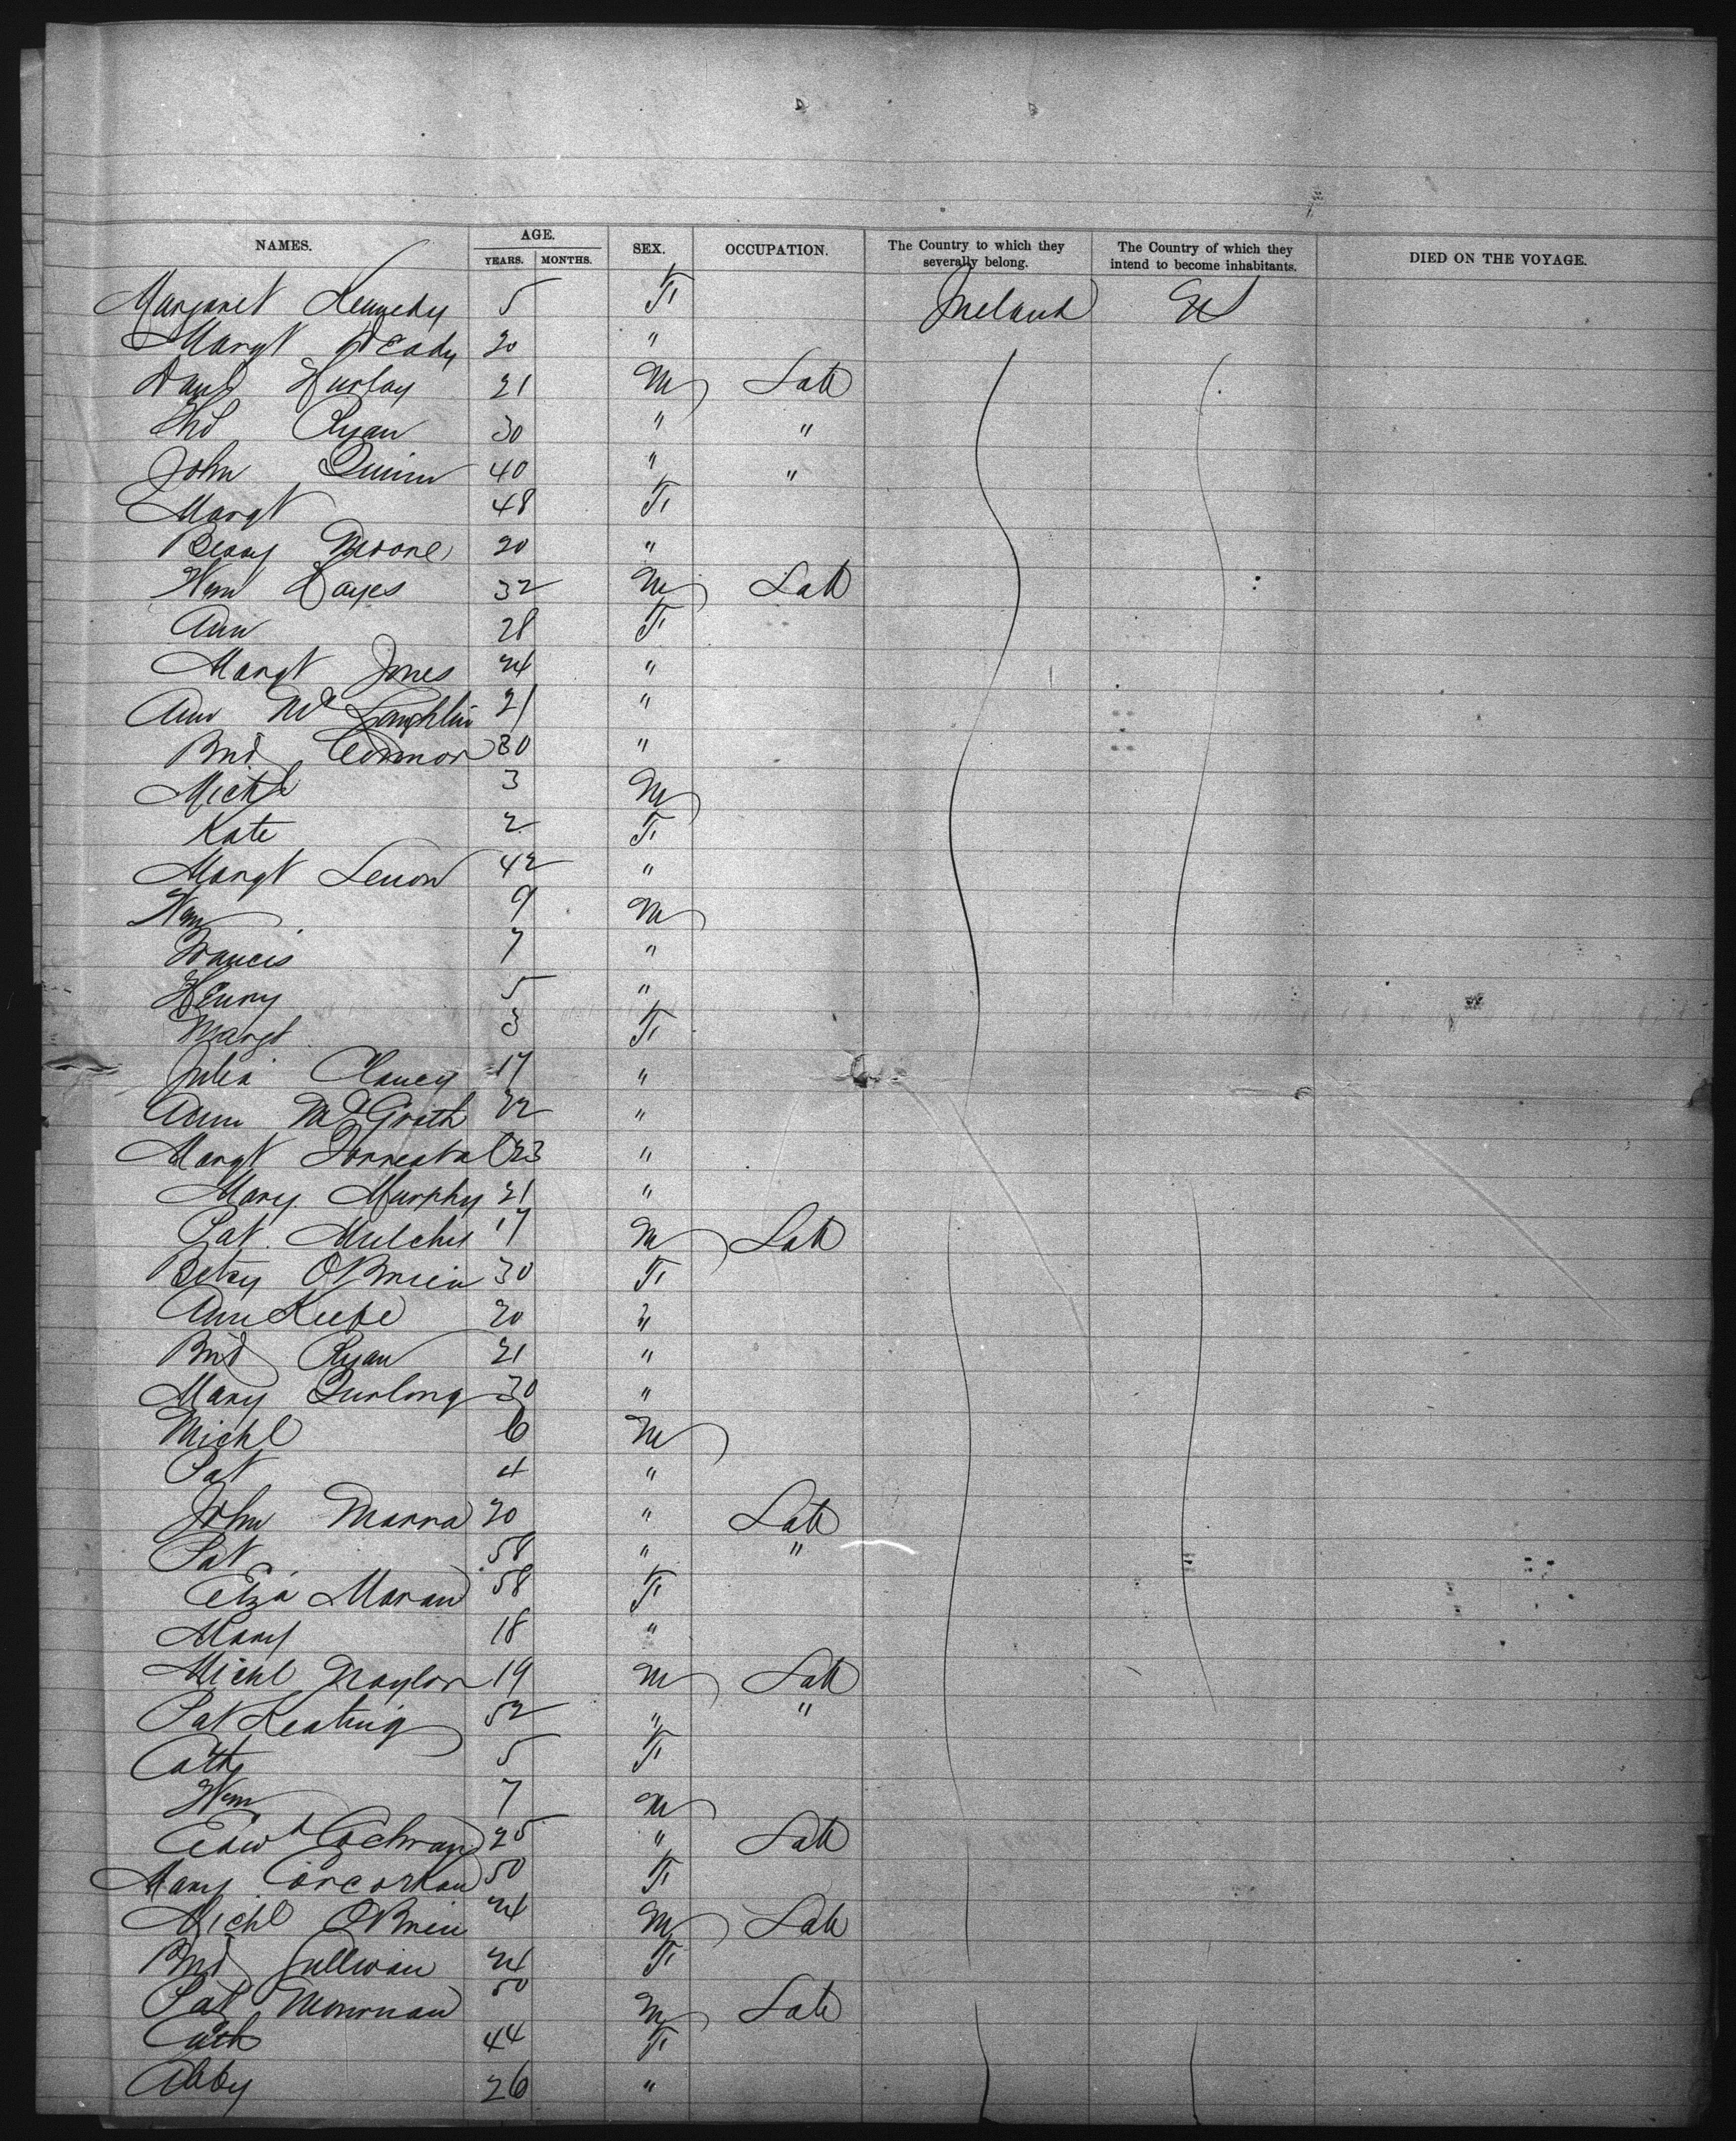 NAMES. AGE. YEARS. MONTHS. SEX. OCCUPATION. The Country to which they severally belong. The Country of which they intend to become inhabitants. DIED ON THE VOYAGE.
Margaret Kennedy 5 F Ireland US
Margt Ready 20 "
David Hurley 21 M Lab
Thos Ryan 30 " "
John Quinn 40 " "
Margt 48 F
Bessy Moore 20 "
Wm Hayes 32 M Lab
Ann 28 F
Margt Jones 24 "
Ann McLaughlin 21 "
Brid Connor 30 "
Michl 3 M
Kate 2 F
Margt Lenon 42 "
Wm 9 M
Francis 7 "
Henry 5 "
Margt 3 F
Julia Clancy 17 "
Ann McGrath 22 "
Margt Forrestal 23 "
Mary Murphy 21 "
Pat Mulchy 17 M Lab
Betsy OBrien 30 F
Ann Keefe 20 "
Brid Ryan 21 "
Mary Furlong 30 "
Michl 6 M
Pat 4 "
John Marra 20 " Lab
Pat 58 " "
Eliza Maran 58 F
Mary 18 "
Michl Naylor 19 M Lab
Pat Keating 52 " "
Cath 5 F
Wm 7 M
Edwd Cochran 25 " Lab
Mary Corcorkan 50 F
Michl OBrien 24 M Lab
Brid Sullivan 24 F
Pat 50 M Lab
Cath 44 F
Abby 26 "